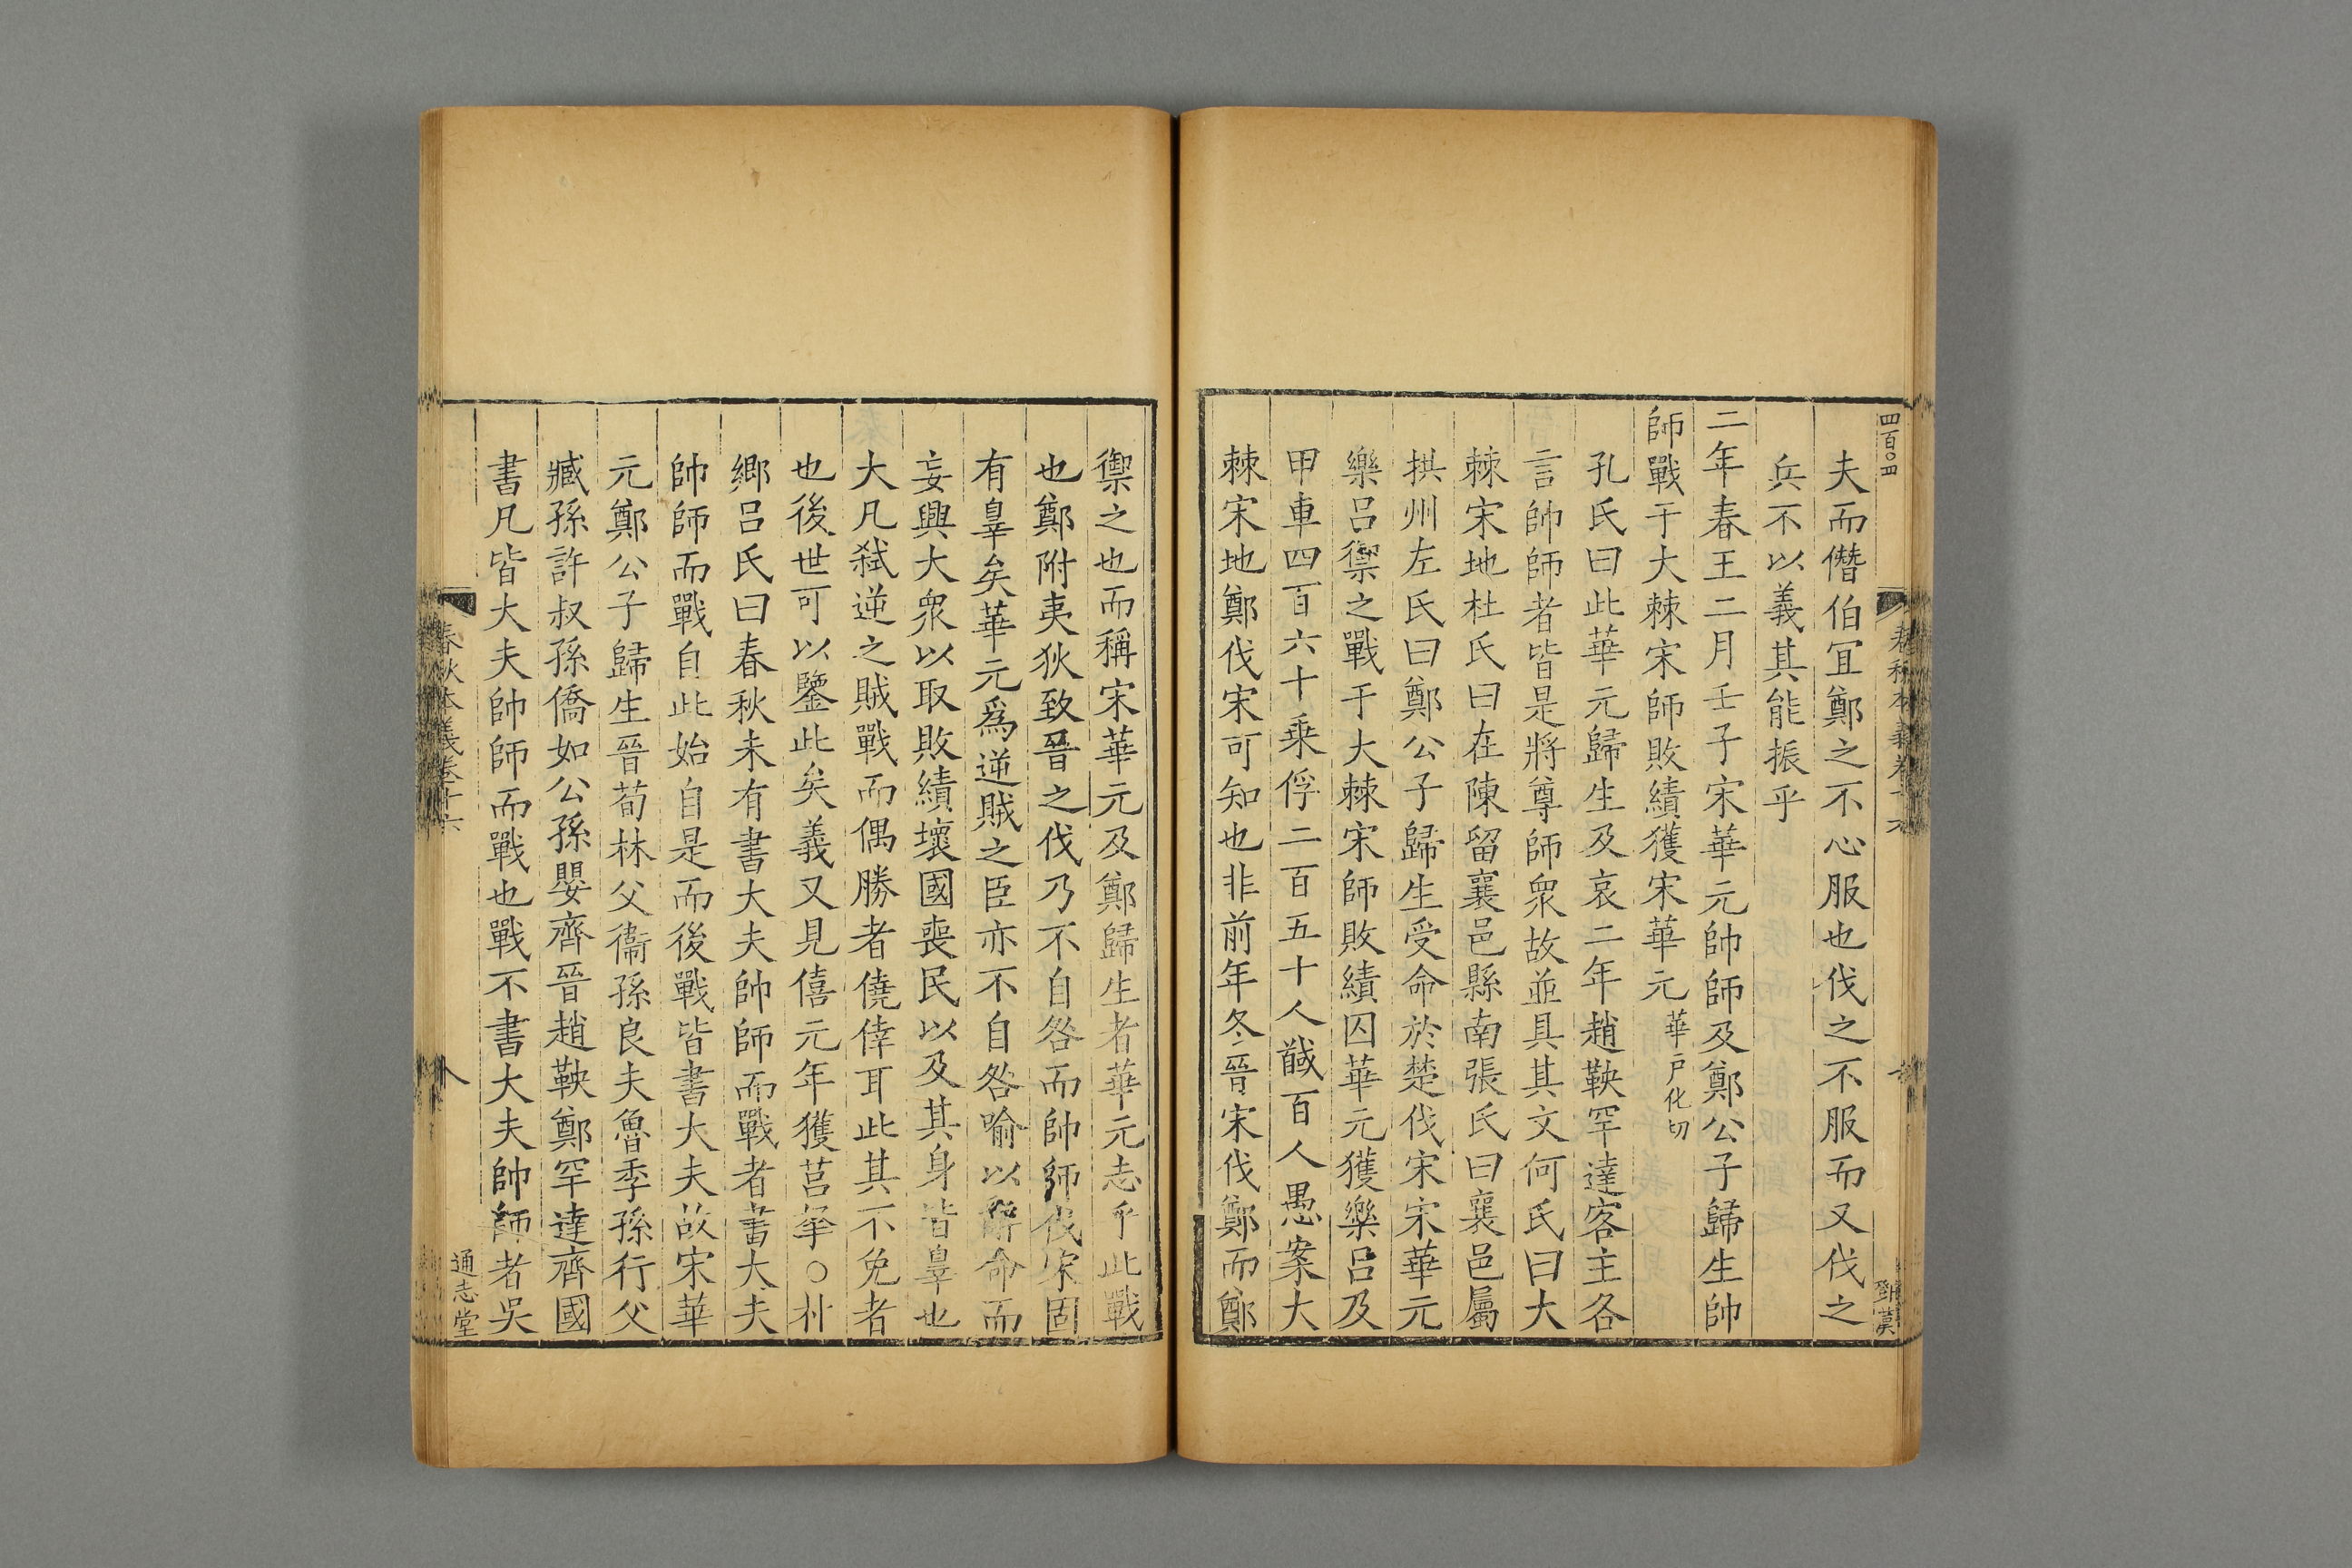 四百〇四
鄧漢
夫而僭伯冝鄭之不心服也伐之不服而又伐之
兵不以義其能振乎
二年春王二月壬子宋華元帥師及鄭公子歸生帥
師戰于大棘宋師敗績獲宋華元華戶化切
孔氏曰此華元歸生及哀二年趙鞅罕達客主各
言帥師者皆是將尊師衆故並具其文何氏曰大
棘宋地杜氏曰在陳留襄邑縣南張氏曰襄邑屬
拱州左氏曰鄭公子歸生受命於楚伐宋宋華元
樂呂禦之戰于大棘宋師敗績囚華元獲樂呂及
甲車四百六十乗俘二百五十人馘百人愚案大
棘宋地鄭伐宋可知也非前年冬晉宋伐鄭而鄭
禦之也而稱宋華元及鄭歸生者華元志乎此戰
也鄭附夷狄致晉之伐乃不自咎而帥師伐宋固
有辠矣華元爲逆賊之臣亦不自咎喻以辭命而
妄興大衆以取敗績壞國喪民以及其身皆辠也
大凡弑逆之賊戰而偶勝者僥倖耳此其不免者
也後世可以鑒此矣義又見僖元年獲莒挐○朴
鄉呂氏曰春秋未有書大夫帥師而戰者書大夫
帥師而戰自此始自是而後戰皆書大夫故宋華
元鄭公子歸生晉荀林父衞孫良夫魯季孫行父
臧孫許叔孫僑如公孫嬰齊晉趙鞅鄭罕達齊國
書凡皆大夫帥師而戰也戰不書大夫帥師者吳
春秋本義卷十六
八
通志堂